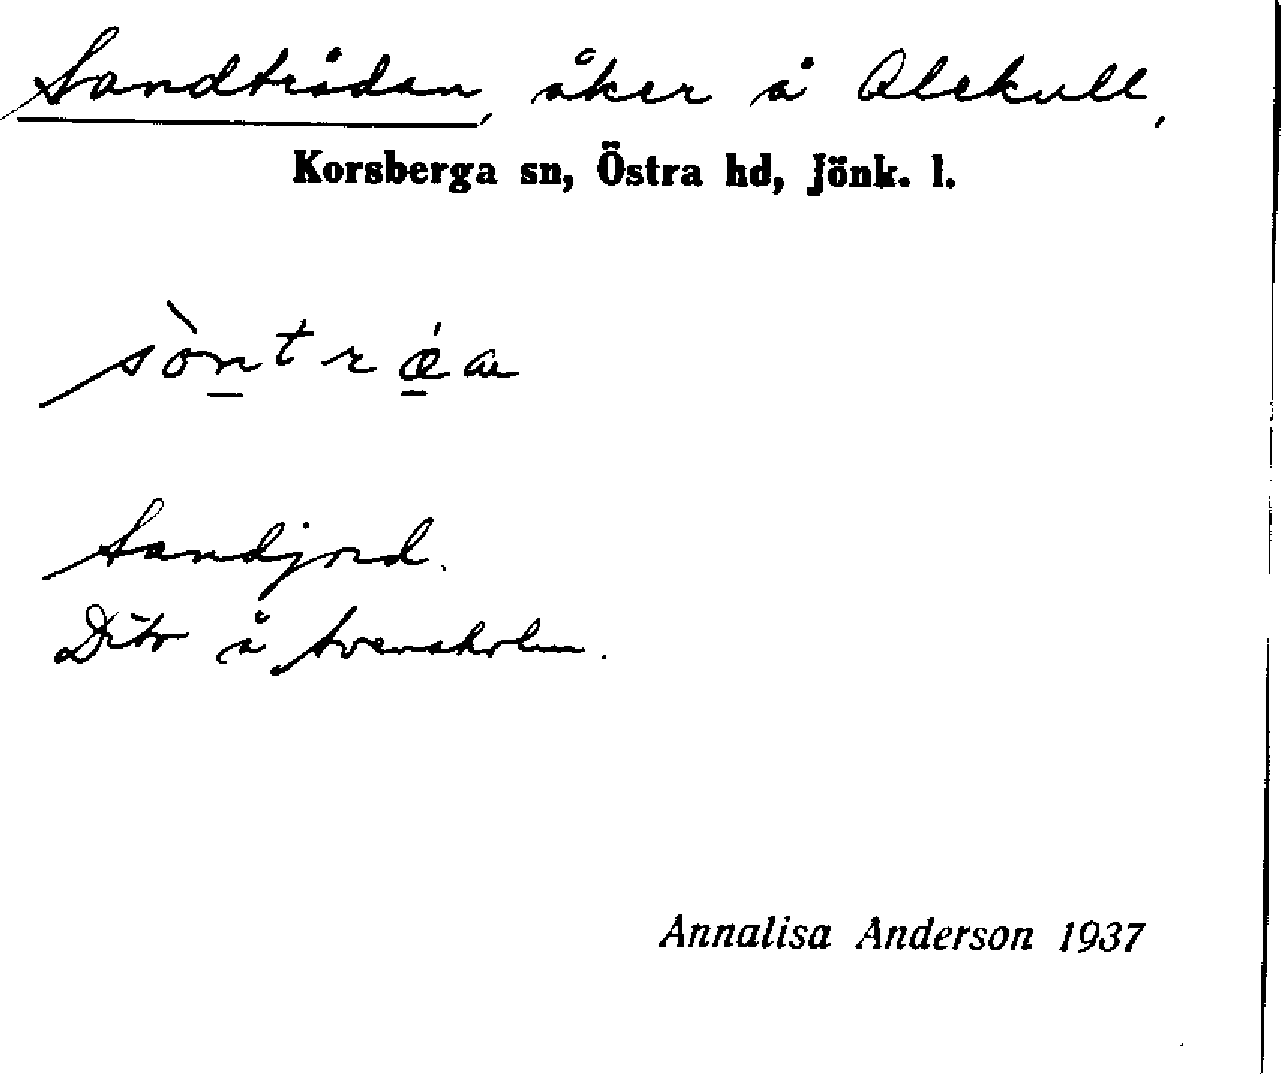 Sandtrådan, åker å Alekull,
Korsberga sn, Östra hd, Jönk. l.
Sandjord.
Dito å Svensholm.
Annalisa Anderson 1937